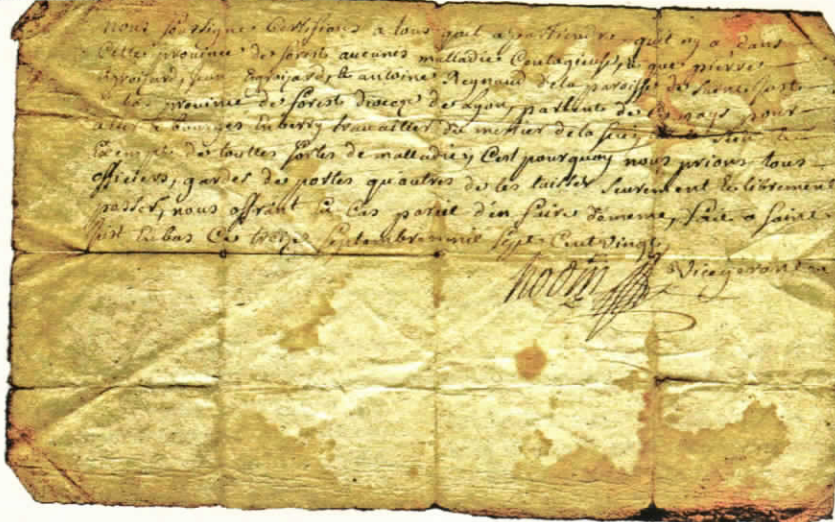 nous soussigné Certifions a tous quil apartiendra quil ny a dans
Cette province de forest aucunes malladie Contagieuse, & que pierre
Jean & antoine Reynaud de la paroisse de
province de forest dioceze de Lyon, partante de pays pour
aller a bourges En berry travailler du mettier de la
Exempts de touttes sortes de malladies Cest pourquoy nous prions tous
officiers, gardes de portes qu'autres de les laisser seurement & librement
passer, nous offrant En Cas pareil d'en faire de meme, fait a saint
just En bas Ce treize Septembre mil Sept Cent vingt,